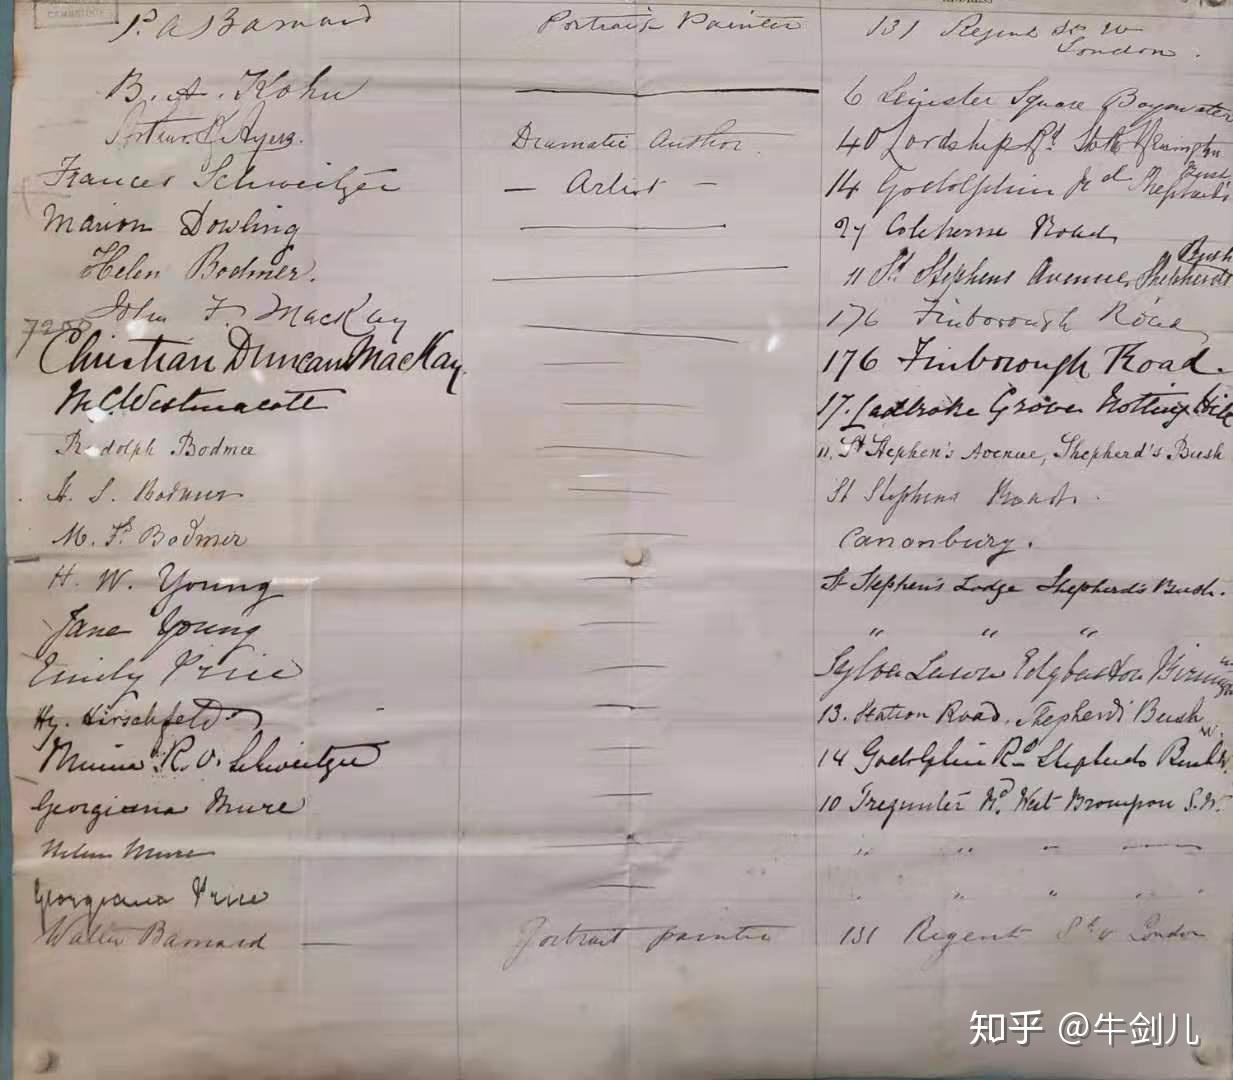 P. A. Barnard Portrait Painter 131 Regent St. W
London.
B. A. Kohn 6 Leinster Square Bayswater
Arthur Ayers. Dramatic Author. 40 Lordship Rd. Stoke Newington
Frances Schweitzer — Artist — 14 Godolphin Rd Shepherd's Bush
Marion Dowling 27 Coleherne Road,
Helen Bodmer. 11 St. Stephens Avenue, Shepherds Bush
John F. MacKay 176 Finborough Road
Christian Duncan MacKay. 176 Finborough Road.
M. C. Westmacott 17. Ladbroke Grove Notting Hill
Rudolph Bodmer 11. St Stephen's Avenue, Shepherd's Bush
H. S. Bodmer St Stephens Road.
M. Bodmer Canonbury.
H. W. Young St Stephen's Lodge Shepherd's Bush.
Jane Young " " "
Emily Price Lawn Edgbaston
Hy. Hirschfeld 13. Station Road. Shepherds Bush W.
Minnie R. O. Schweitzer 14 Godolphin Rd Shepherds Bush W.
Georgiana Mure 10 Tregunter Rd. West Brompton S.W.
Helen Mure " " "
Georgiana Price " " " "
Walter Barnard — Portrait painter 131 Regent St W London
知乎 @牛剑儿